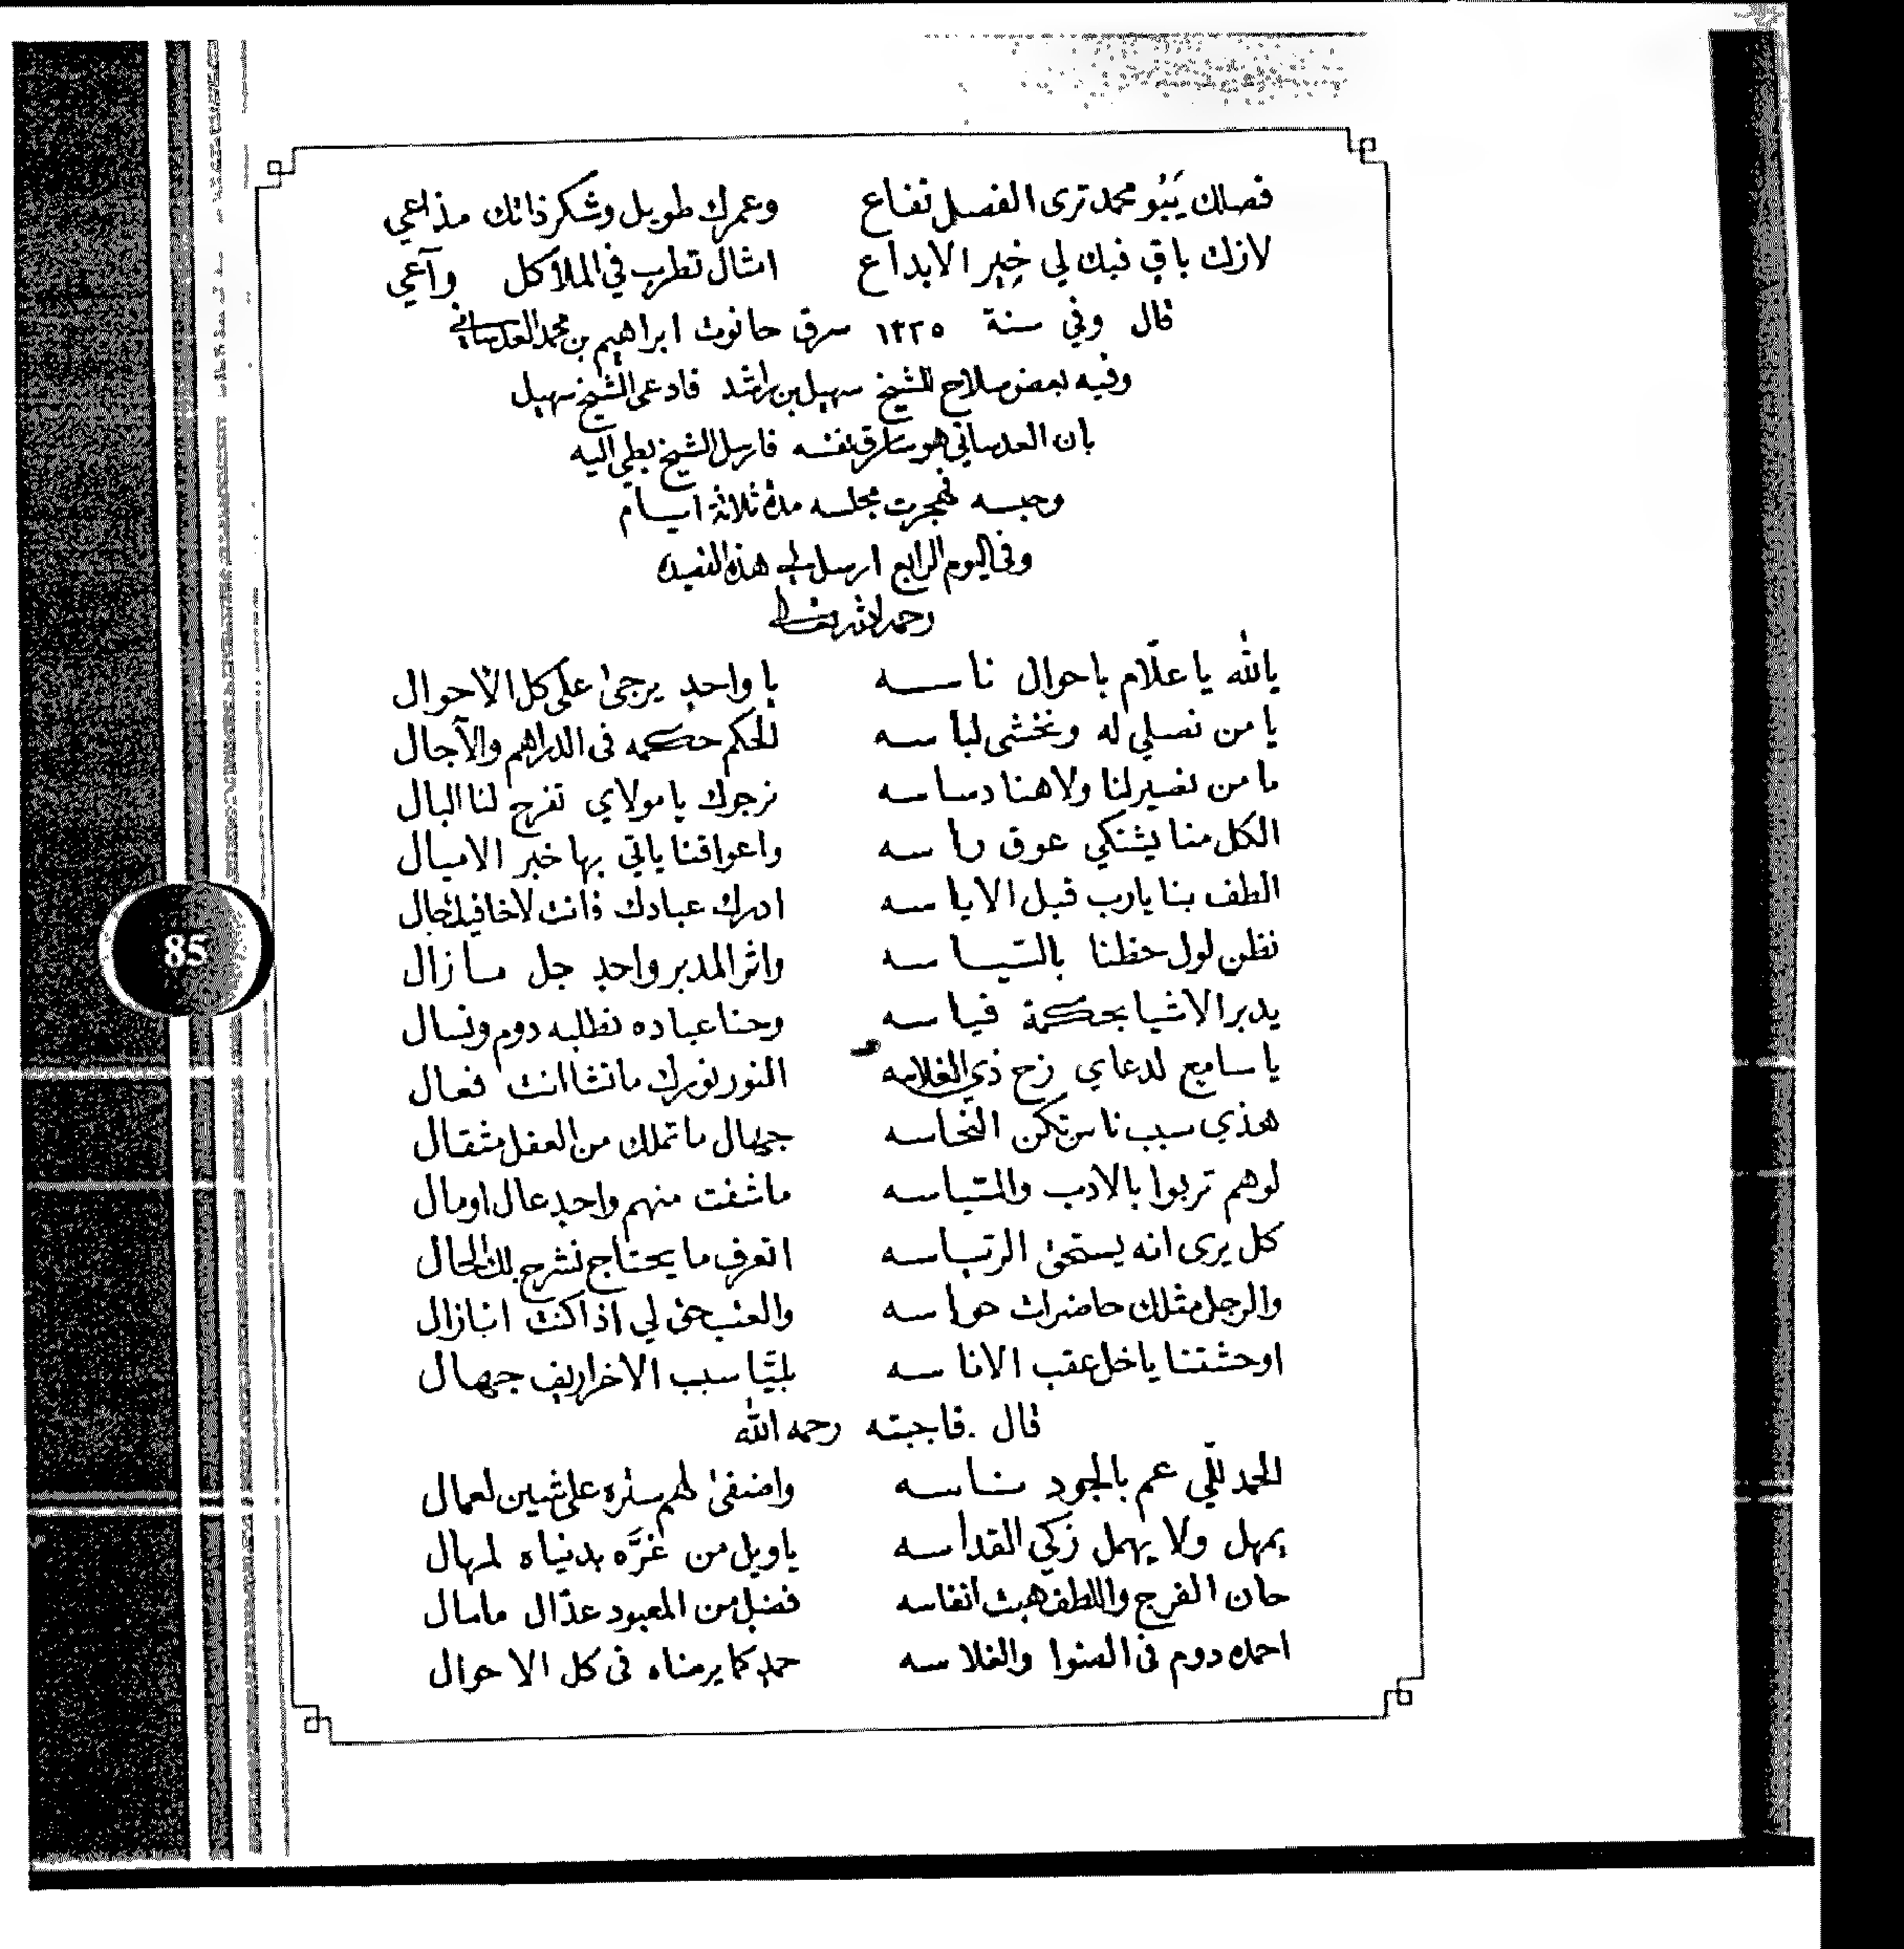 فصلك يَبُو محمد ترى الفصل نفاع وعمرك طويل وشكر ذاتك مذاعي
لازلك باقي فيك لي خير الابداع امثال تطرب في الملا كل وآعي
قال وفي سنة ١٣٢٥ سرق حانوت ابراهيم بن محمد العدساني
وفيه بعض سلاح للشيخ سهيل بن راشد فادعى الشيخ سهيل
بان العدساني هو سارق نفسه فارسل الشيخ بطي اليه
وحبسه فهجرت مجلسه مدة ثلاثة ايام
وفى اليوم الرابع ارسل لي هذه القصيده
رحمه الله تعالى
يالله يا علّام باحوال ناسه يا واحدٍ يرجى على كل الاحوال
يا من نصلي له ونخشى لباسه للحكم حكمه فى الدراهم والآجال
ما من نصير لنا ولا هنا دساسه نرجوك يا مولاي تفرج لنا البال
الكل منا يشتكي عوق راسه واعواقنا ياتي بها خبر الاميال
الطف بنا يارب قبل الاياسه ادرك عبادك ذانت لاخافيك حال
نظن لول حظنا بالتيساسه واثر المدبر واحدٍ جل مازال
يدبر الاشيا بحكمة قياسه وحنا عباده نطلبه دوم ونسال
يا سامع لدعاي زح ذي الغلاسه النور نورك ماتشا انت فعال
هذي سبب ناس تكن النحاسه جهال ما تملك من العقل مثقال
لو هم تربوا بالادب والسياسه ماشفت منهم واحدٍ عال اومال
كل يرى انه يستحق الرياسه اتعرف ما يحتاج نشرح لك الحال
والرجل مثلك حاضرات حواسه والعتب حق لي اذا كنت انبازال
اوحشتنا ياخل عقب الاناسه بليّا سبب الاخراريف جهال
قال فاجبته رحمه الله
الحمد للّي عم بالجود ناسه واضفى لهم ستره على شين لعمال
يمهل ولا يهمل زَكي القداسه ياويل من غرَّه بدنياه لمهال
حان الفرج واللطف هبت انفاسه فضلٍ من المعبود عدّال مامال
احمده دوم فى الضوا والغلاسه حمدٍ كما يرضاه فى كل الاحوال
85